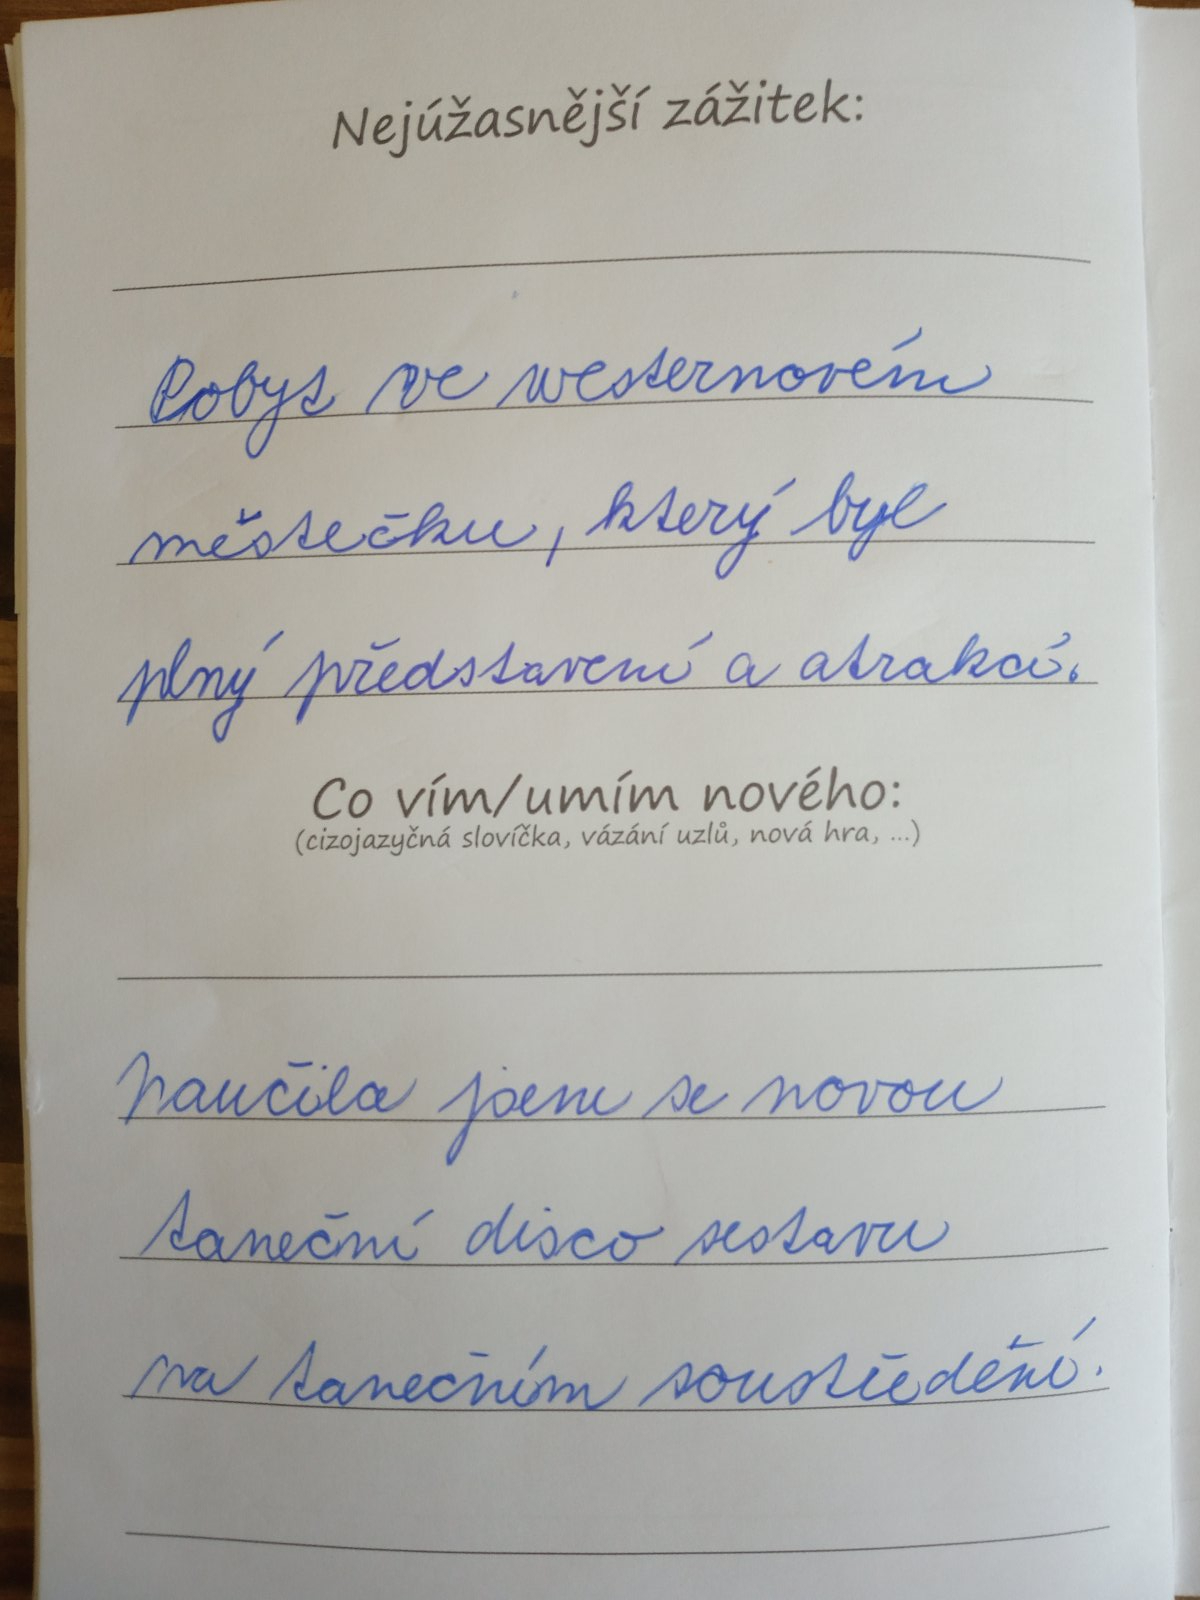 Nejúžasnější zážitek:
Pobyt ve westernovém
městečku, který byl
plný představení a atrakcí.
Co vím/umím nového:
(cizojazyčná slovíčka, vázání uzlů, nová hra, ...)
Naučila jsem se novou
taneční disco sestavu
na tanečním soustředění.